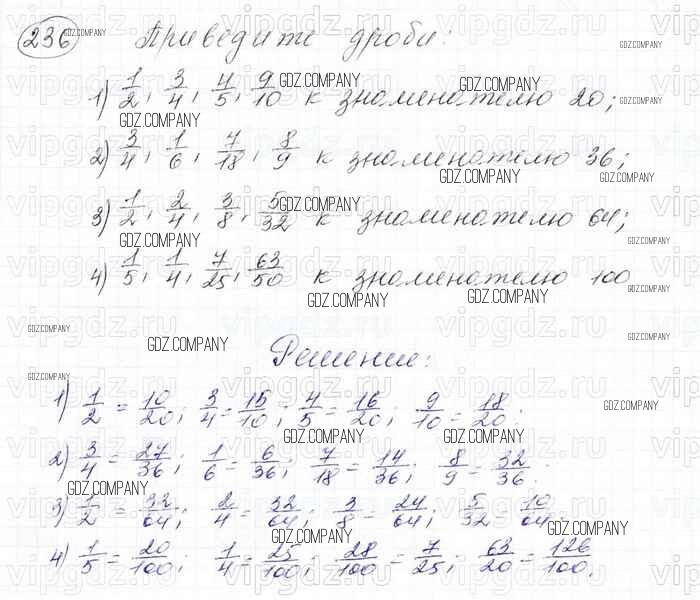 236 Приведите дроби:
1) 1/2, 3/4, 4/5, 9/10 к знаменателю 20;
2) 3/4, 1/6, 7/18, 8/9 к знаменателю 36;
3) 1/2, 2/4, 3/8, 5/32 к знаменателю 64;
4) 1/5, 1/4, 7/25, 63/50 к знаменателю 100
Решение:
1) 1/2 = 10/20; 3/4 = 15/10; 4/5 = 16/20; 9/10 = 18/20;
2) 3/4 = 27/36; 1/6 = 6/36; 7/18 = 14/36; 8/9 = 32/36;
3) 1/2 = 32/64; 2/4 = 32/64; 3/8 = 24/64; 5/32 10/64;
4) 1/5 = 20/100; 1/4 = 25/100; 28/100 = 7/25; 63/20 = 126/100.
GDZ.COMPANY
vipgdz.ru